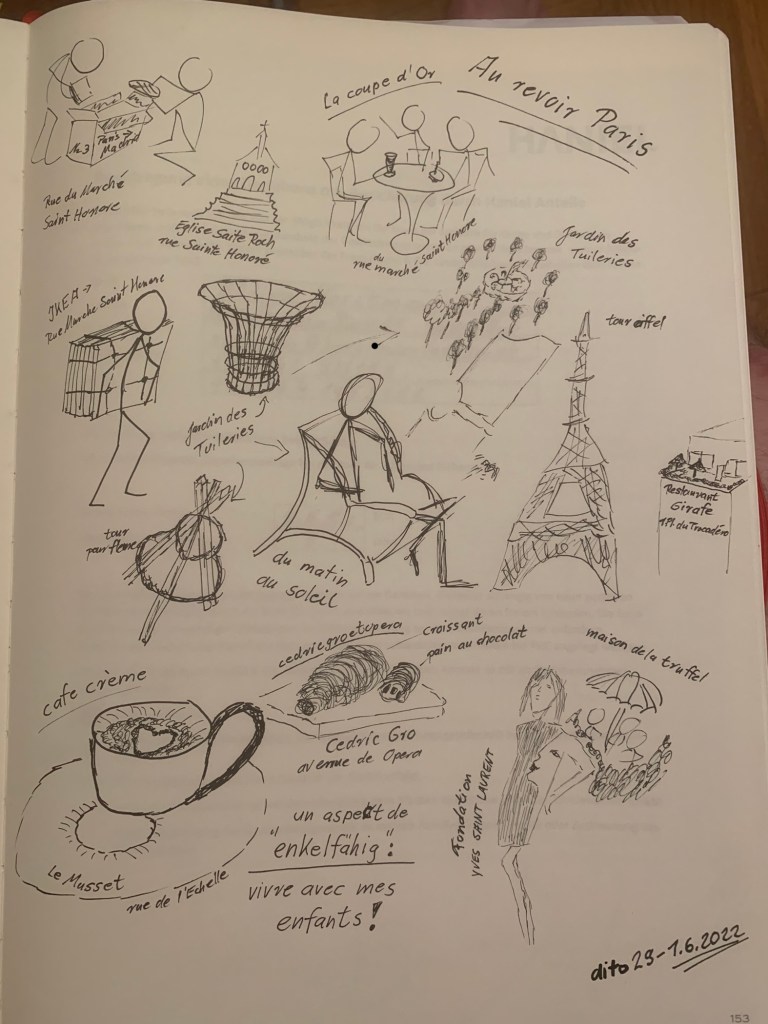 La coupe d'Or
Au revoir Paris
Paris →
Madrid
Rue du Marché
Saint Honore
Eglise Saite Roch
rue Sainte Honoré
du
rue marché saint Honore
Jardin des
Tuileries
IKEA →
Rue Marche Saint Honore
tour eiffel
Jardin des
Tuileries
Restaurant
Girafe
1 Pl. du Trocadéro
tour
pour
du matin
au soleil
cedricgroetopera
croissant
pain au chocolat
maison de la truffel
cafe crème
Cedric Gro
avenue de Opera
Fondation
YVES SAINT LAURENT
un aspekt de
"enkelfähig":
vivre avec mes
enfants!
Le Musset
rue de l'Echelle
dito 29-1.6.2022
153